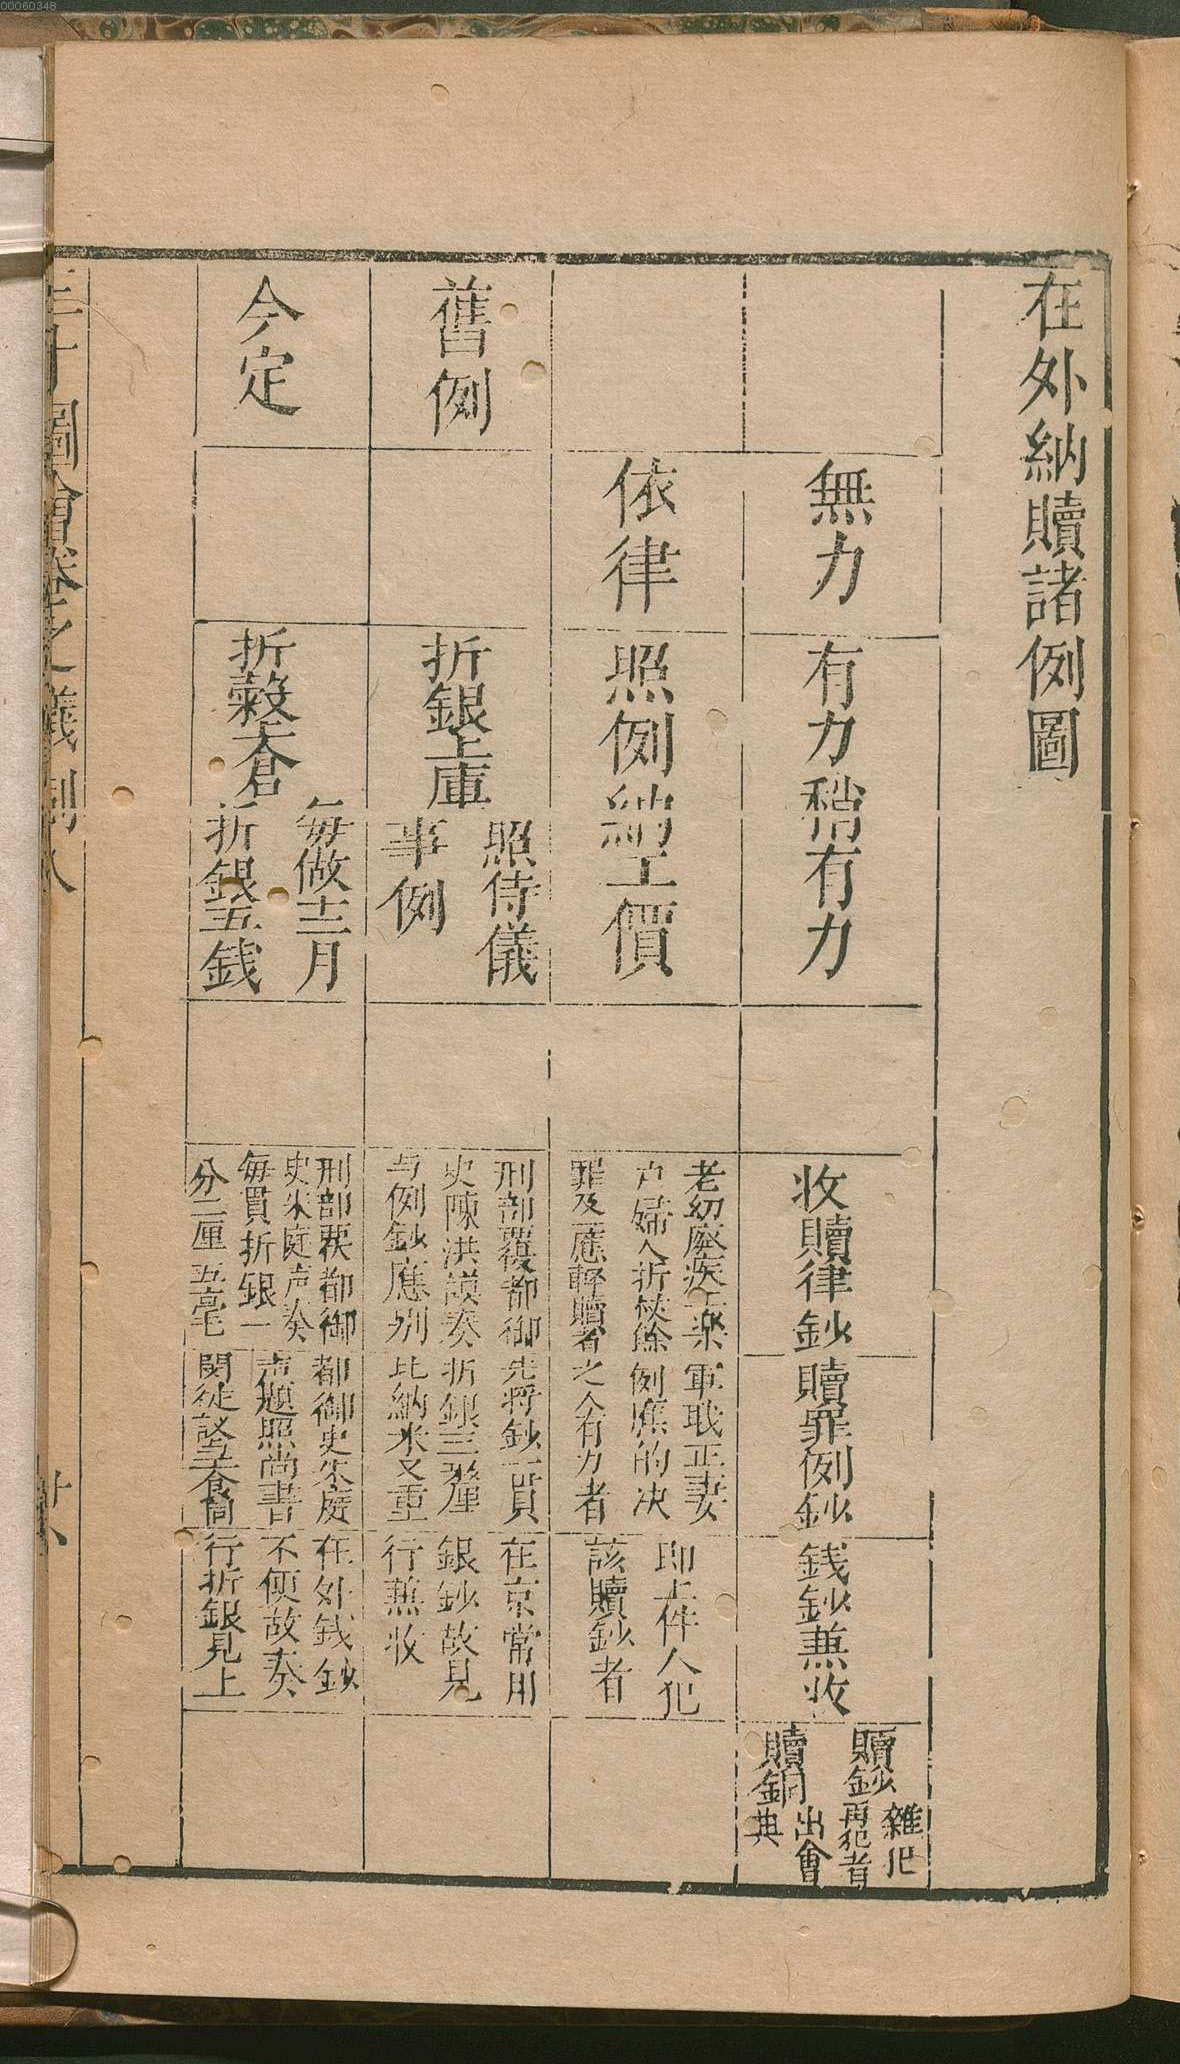 00060348
在外納贖諸例圖
無力
有力稍有力
收贖律鈔
贖罪例鈔
錢鈔蕪收
贖鈔
雜犯
再犯者
贖銅
出會
典
依律
照例納工價
老幼廢疾
戶婦人折杖餘
罪及應輕贖者
軍職正妻
例應的决
之人有力者
即上件人犯
該贖鈔者
舊例
折銀上庫
照侍儀
事例
刑部覆都御
史陳洪謨奏
与例鈔應别
先將鈔一貫
折銀三釐
比納米又重
在京常用
銀鈔故見
行蕪收
今定
折穀上倉
每做工一月
折銀五錢
刑部覆都御
史朱廷声奏
每貫折銀一
分二厘五毫
都御史朱廷
声題照尚書
在外錢鈔
不便故奏
行折銀見上
圖會卷之儀制八